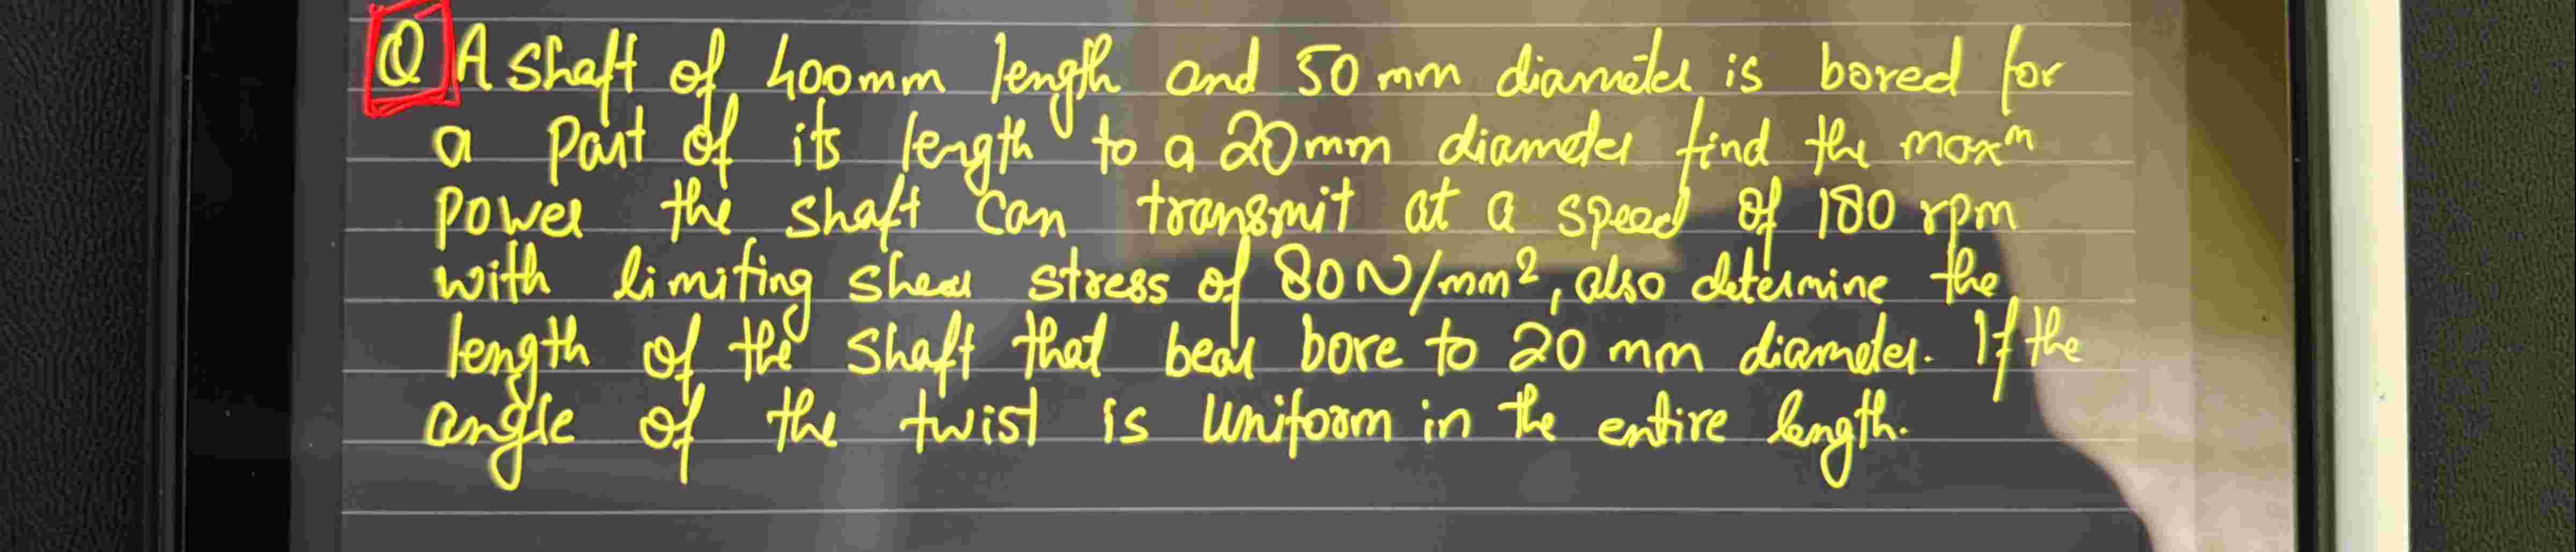 Q A shaft of 400mm length and 50 mm diameter is bored for
a part of its length to a 20mm diameter find the maxm
power the shaft can transmit at a speed of 180 rpm
with limiting shear stress of 80N/mm², also determine the
length of the shaft that bear bore to 20 mm diameter. If the
angle of the twist is uniform in the entire length.